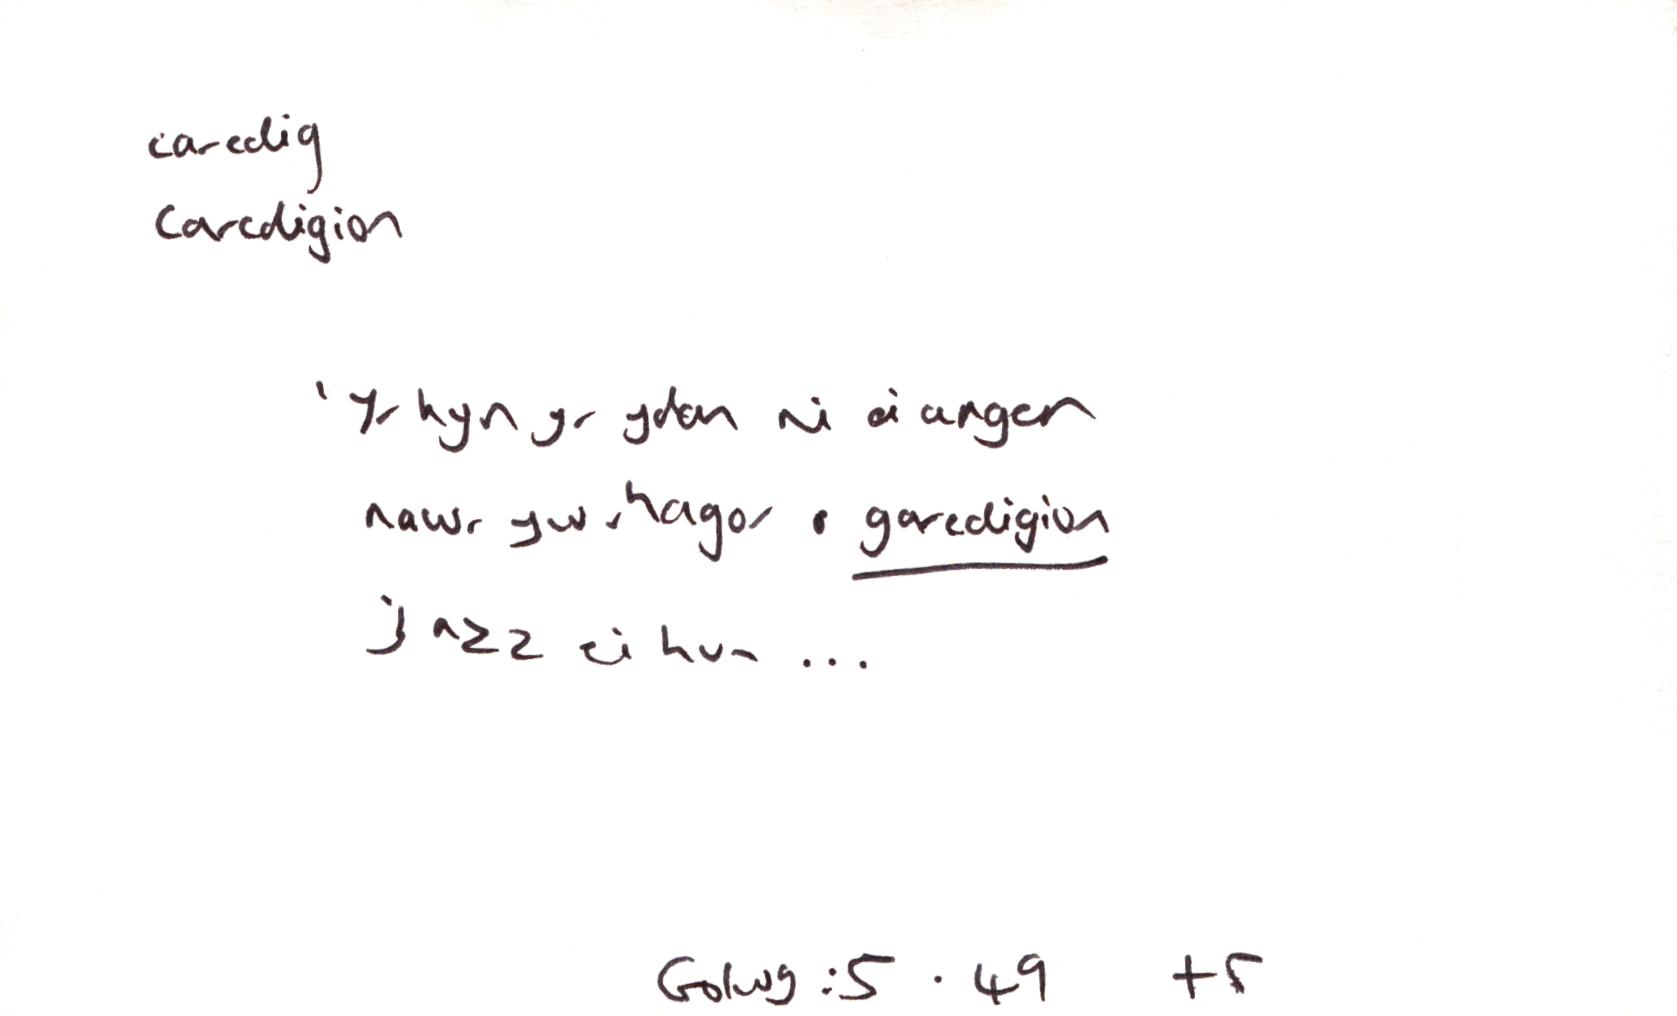 caredig
Caredigion
'Yr hyn yr ydan ni ei angen
nawr yw rhagor o garedigion
jazz ei hun ...
Golwg : 5 . 49 + 5